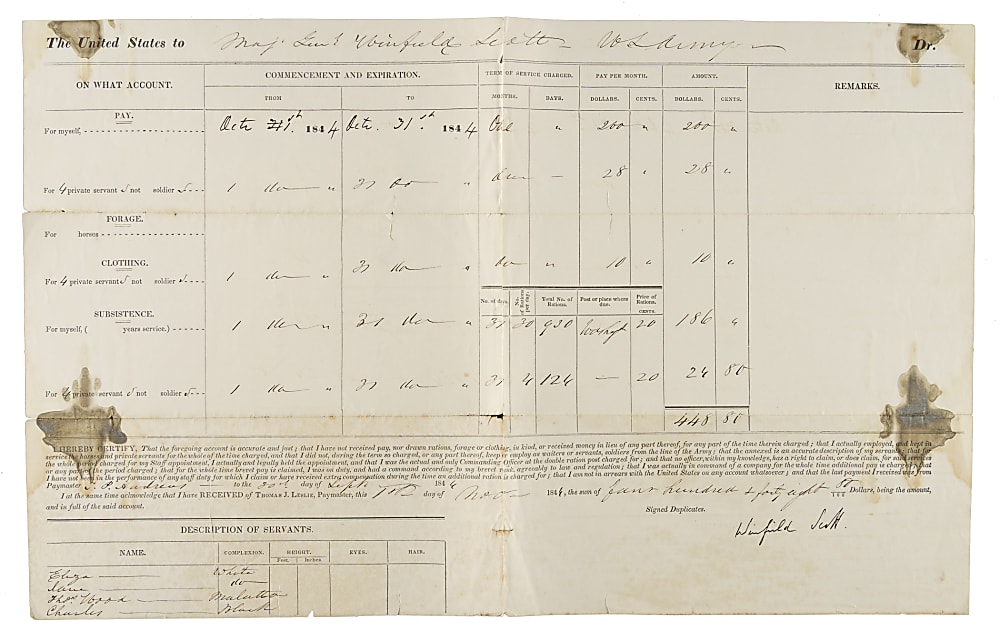 The United States to Maj. Genl. Winfield Scott U S Army Dr.
ON WHAT ACCOUNT. COMMENCEMENT AND EXPIRATION. TERM OF SERVICE CHARGED. PAY PER MONTH. AMOUNT. REMARKS.
FROM TO MONTHS. DAYS. DOLLARS. CENTS. DOLLARS. CENTS.
PAY.
For myself, Octr. 1st. 1844 Octr. 31st. 1844 One " 200 " 200 "
For 4 private servants not soldiers 1 do " 31 do " do — 28 " 28 "
FORAGE.
For horses
CLOTHING.
For 4 private servants not soldiers 1 do " 31 do " do " 10 " 10 "
No. of days. No. of Rations per day. Total No. of Rations. Post or place where due. Price of Rations. CENTS.
SUBSISTENCE.
For myself, ( years service.) 1 do " 31 do " 31 30 930 20 186 "
For 4 private servants not soldiers 1 do " 31 do " 31 4 124 — 20 24 80
448 80
I HEREBY CERTIFY, That the foregoing account is accurate and just; that I have not received pay, nor drawn rations, forage or clothing, in kind, or received money in lieu of any part thereof, for any part of the time therein charged; that I actually employed, and kept in
service the horses and private servants for the whole of the time charged, and that I did not, during the term so charged, or any part thereof, keep or employ as waiters or servants, soldiers from the line of the Army; that the annexed is an accurate description of my servants; that for
the whole period charged for my Staff appointment, I actually and legally held the appointment, and that I was the actual and only Commanding Officer at the double ration post charged for; and that no officer, within my knowledge, has a right to claim, or does claim, for said services
for any part of the period charged; that for the whole time brevet pay is claimed, I was on duty, and had a command according to my brevet rank, agreeably to law and regulation; that I was actually in command of a company for the whole time additional pay is charged; that
I have not been in the performance of any staff duty for which I claim or have received extra compensation during the time an additional ration is charged for; that I am not in arrears with the United States on any account whatsoever; and that the last payment I received was from
Paymaster T. P. Andrews to the 30th day of Sept 184
I at the same time acknowledge that I have RECEIVED of THOMAS J. LESLIE, Paymaster, this 1st day of Novr 184 , the sum of four hundred & forty eight 80/100 Dollars, being the amount,
and in full of the said account.
Signed Duplicates.
Winfield Scott.
DESCRIPTION OF SERVANTS.
NAME. COMPLEXION. HEIGHT. EYES. HAIR.
Feet. Inches
Eliza White
Jane do
Thos. Wood Mulatto
Charles Black